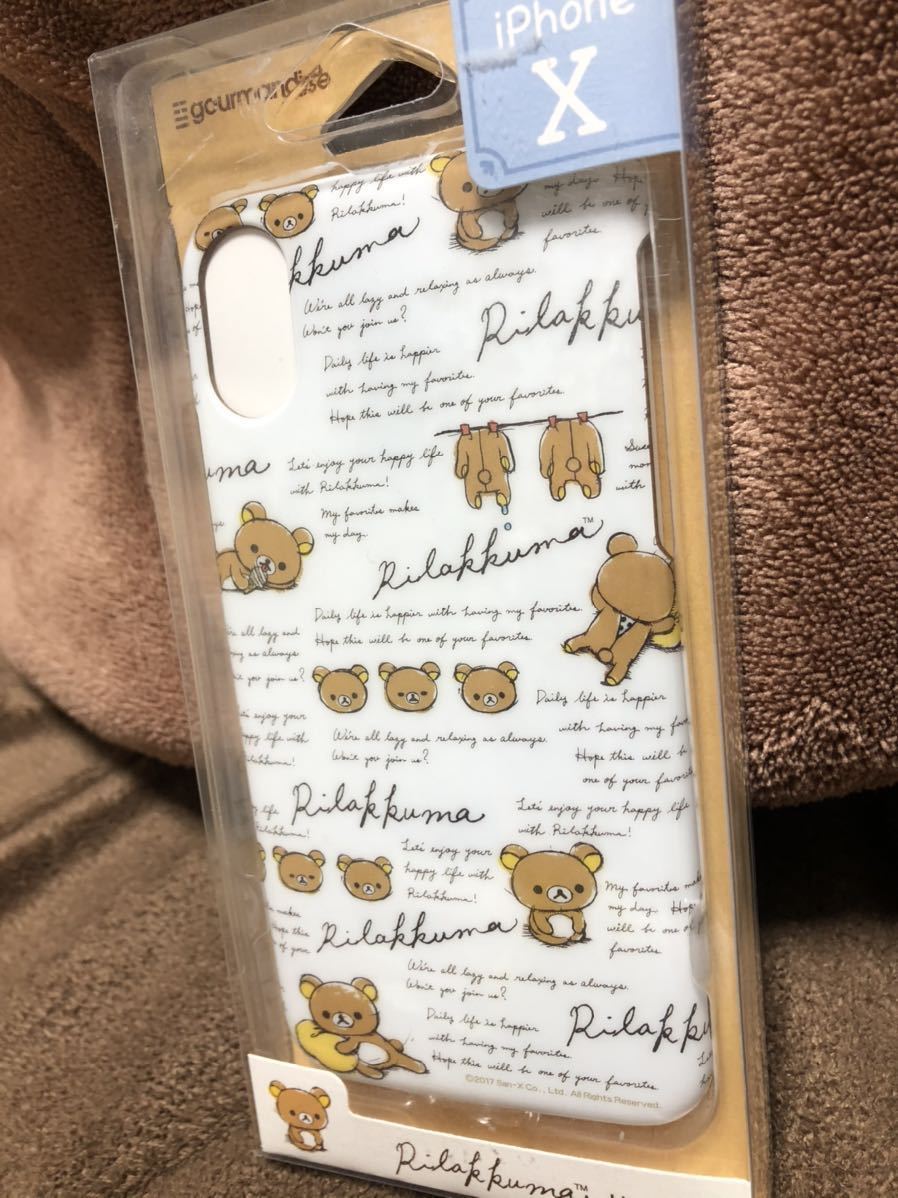 gourmandise
iPhone
X
happy life with
Rilakkuma!
my day. Hope
will be one of
favorites.
kkuma
We're all lazy and relaxing as always.
Won't you join us?
Rilakku
Daily life is happier
with having my favorites.
Hope this will be one of your favorites.
uma
Let's enjoy your happy life
with Rilakkuma!
with
My favorites makes
my day.
Rilakkuma™
Daily life is happier with having my favorites.
Hope this will be one of your favorites.
all lazy and
as always
you join us?
Daily life is happier
with having my
Hope this will be
one of your
enjoy your
life with
We're all lazy and relaxing as always.
Won't you join us?
Rilakkuma
life
Let's enjoy your happy life
with Rilakkuma!
Let's enjoy your
happy life with
Rilakkuma!
My favorites
my day. Hope
will be one of
favorites.
makes
this
of your
Rilakkuma
We're all lazy and relaxing as always.
Won't you join us?
Daily life is happier
with having my favorites.
Hope this will be one of your favorites.
Rilakku
©2017 San-X Co., Ltd. All Rights Reserved.
Rilakkuma™